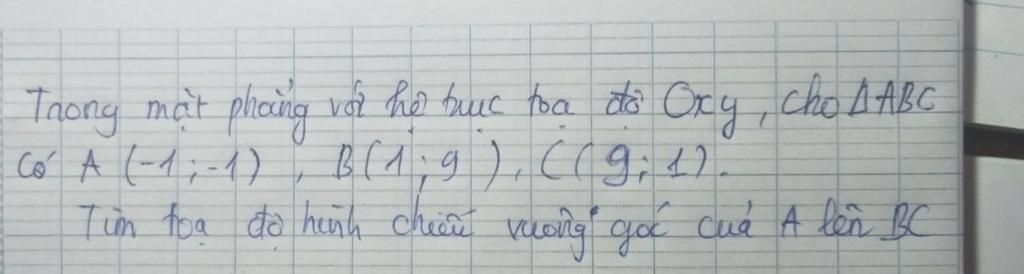 Trong mặt phẳng với hệ trục tọa độ Oxy, cho ΔABC
có A (-1; -1), B(1; 9), C(9; 1).
Tìm tọa độ hình chiếu vuông góc của A lên BC